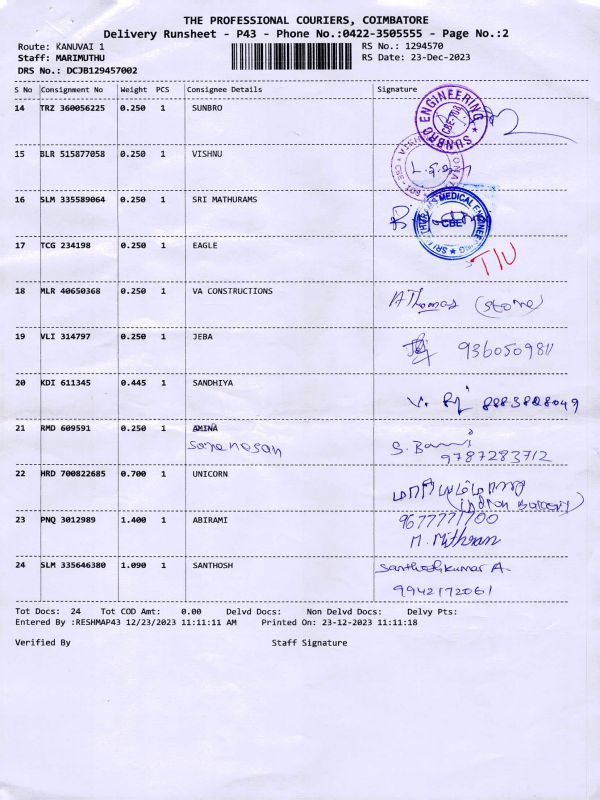 THE PROFESSIONAL COURIERS, COIMBATORE
Delivery Runsheet - P43 - Phone No.:0422-3505555 - Page No.:2
Route: KANUVAI 1 RS No.: 1294570
Staff: MARIMUTHU RS Date: 23-Dec-2023
DRS No.: DCJB129457002
S No Consignment No Weight PCS Consignee Details Signature
14 TRZ 360056225 0.250 1 SUNBRO
SUNBRO ENGINEERING
15 BLR 515877058 0.250 1 VISHNU
16 SLM 335589064 0.250 1 SRI MATHURAMS
MEDICAL
CBE
17 TCG 234198 0.250 1 EAGLE
18 MLR 40650368 0.250 1 VA CONSTRUCTIONS
A Thomas (store)
19 VLI 314797 0.250 1 JEBA
9360509811
20 KDI 611345 0.445 1 SANDHIYA
8883828049
21 RMD 609591 0.250 1 AMINA
9787283712
22 HRD 700822685 0.700 1 UNICORN
23 PNQ 3012989 1.400 1 ABIRAMI
9677771700
M. Mithran
24 SLM 335646380 1.090 1 SANTHOSH
Santhoshkumar A.
9942172061
Tot Docs: 24 Tot COD Amt: 0.00 Delvd Docs: Non Delvd Docs: Delvy Pts:
Entered By :RESHMAP43 12/23/2023 11:11:11 AM Printed On: 23-12-2023 11:11:18
Verified By Staff Signature